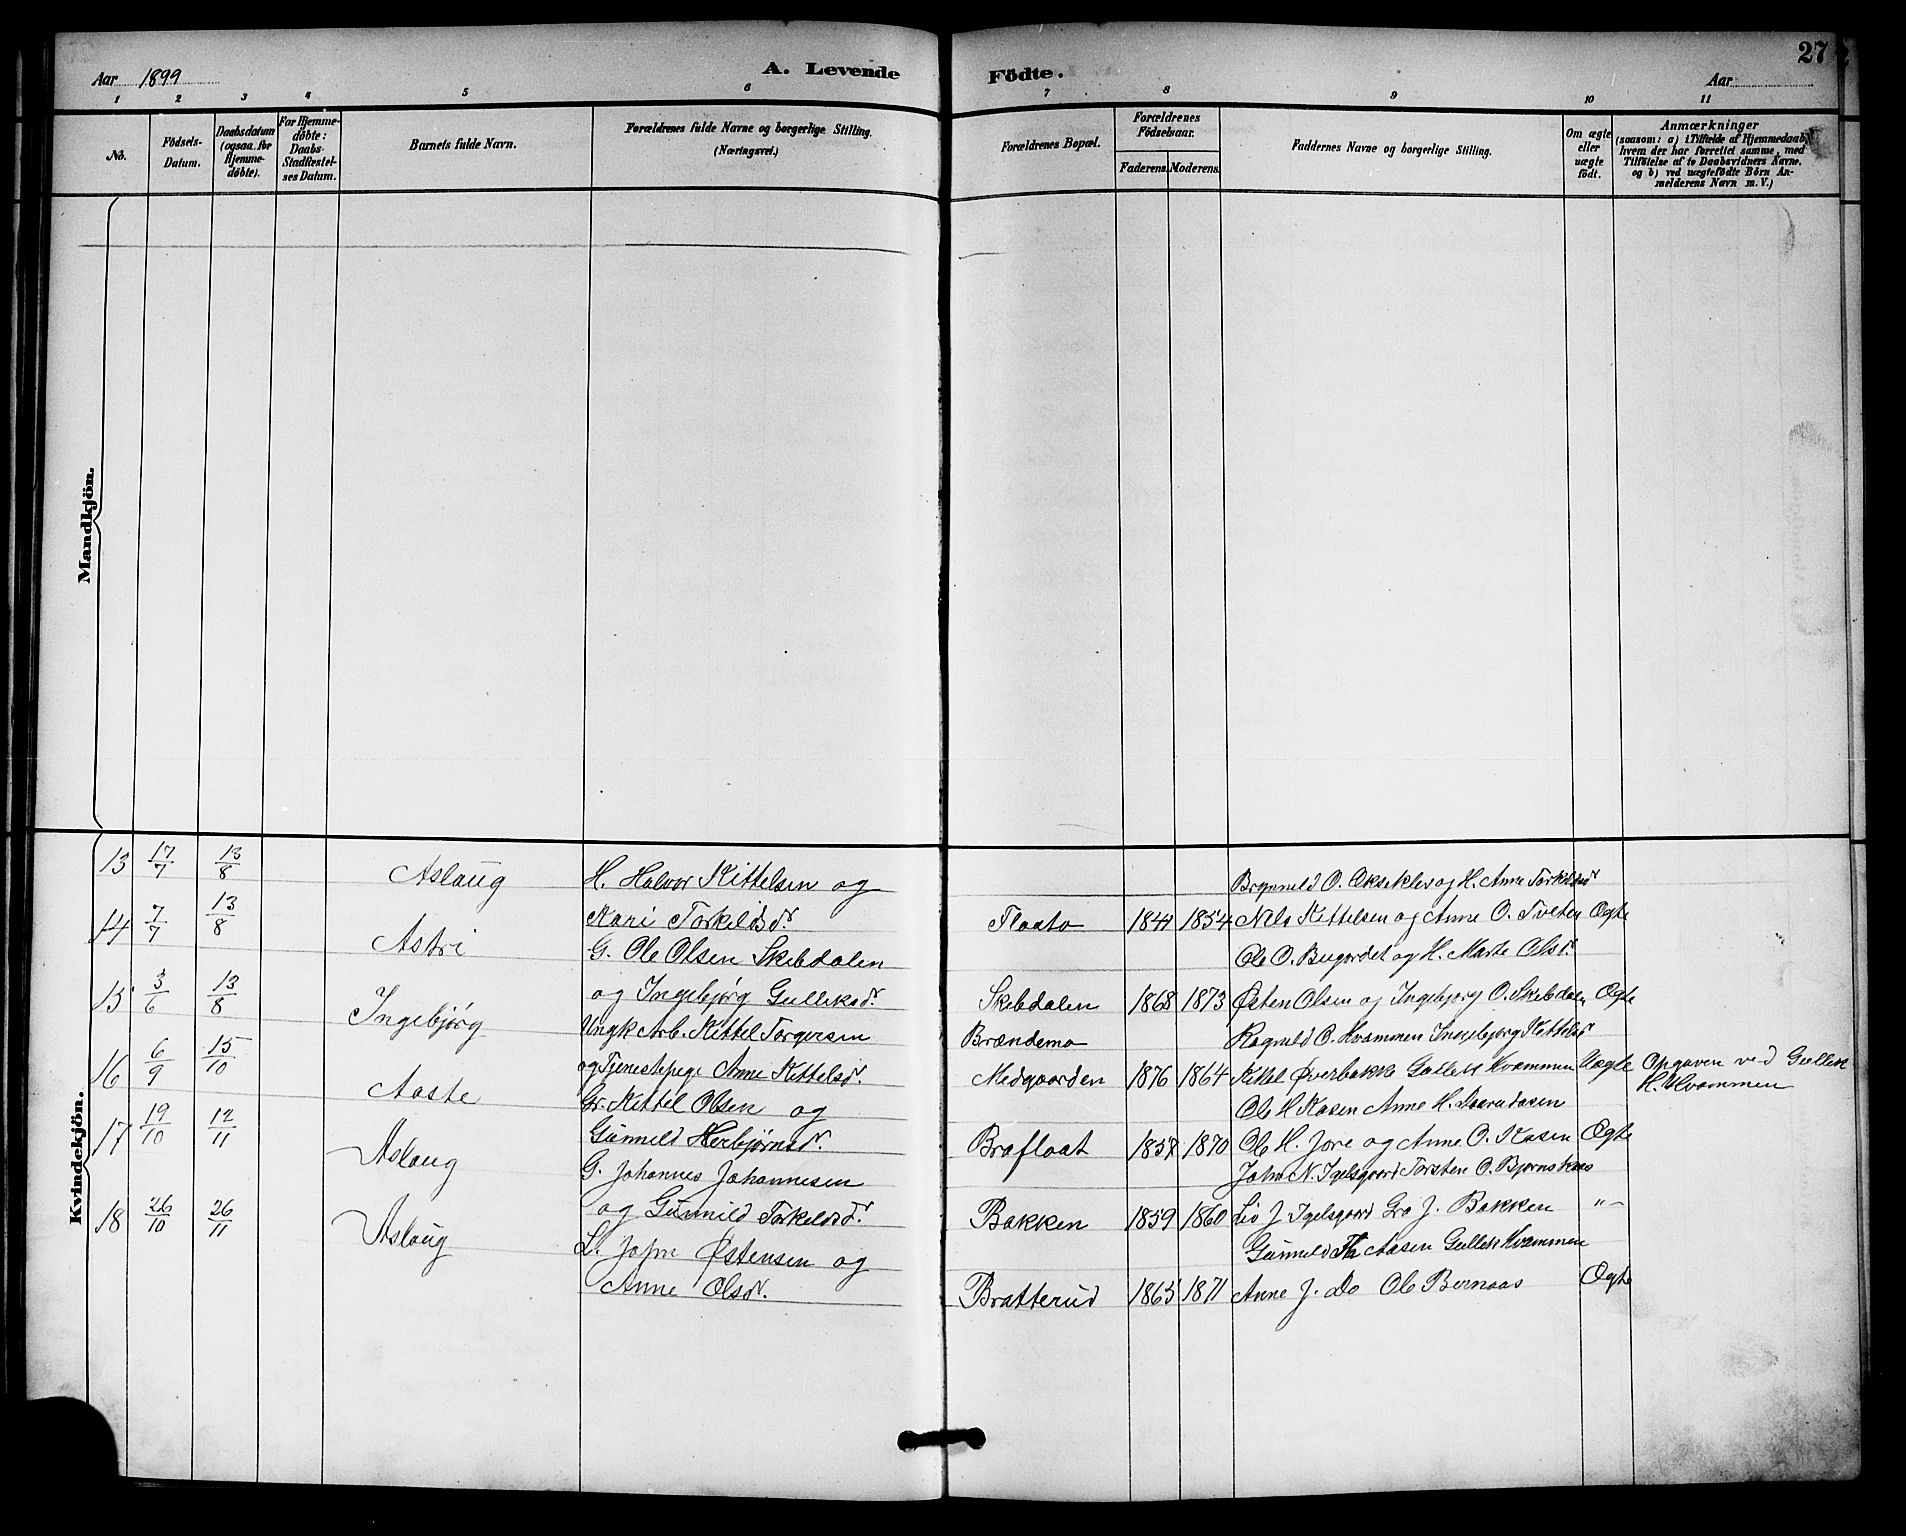 Aar 1899
A. Levende
Födte.
Aar
27
1 2 3 4 5 6 7 8 9 10 11
No.
Födsels-
Datum.
Daabsdatum
(ogsaa for
Hjemme-
döbte).
For Hjemme-
döbte:
Daabs-
Stadfæstel-
ses Datum.
Barnets fulde Navn.
Forældrenes fulde Navne og borgerlige Stilling.
(Næringsvei.)
Forældrenes Bopæl.
Forældrenes
Födselsaar.
Faderens. Moderens.
Faddernes Navne og borgerlige Stilling.
Om ægte
eller
uægte
födt.
Anmærkninger
(saasom: a) i Tilfælde af Hjemmedaab,
hvem der har forrettet samme, med
Tilföielse af to Daabsvidners Navne,
og b) ved uægtefödte Börn An-
melderens Navn m. V.)
Mandkjön.
Kvindekjön.
13 17/7 13/8 Aslaug H. Halvor Kittelsen og
Kari Torkildsdr. Flaato 1844 1854
Brynuld O. Okseklev og H. Anne Torkildsdr
Nils Kittelsen og Anne O. Tveten Ægte
14 7/7 13/8 Astri G. Ole Olsen Skebdalen
og Ingebjørg Gulliksdr. Skebdalen 1868 1873
Ole O. Bugardet og H. Marte Olsdr.
Østen Olsen og Ingebjørg O. Skebdalen Ægte
15 3/6 13/8 Ingebjørg Ungk Arb. Kittel Torgersen
og Tjenestepige Anne Kittelsdr. Brændemo
Medgaarden 1876 1864
Ragnild O. Hvammen Ingebjørg Kittelsdr
Kikel Øverbakke Gullik Hvammen Uægte Opgaven ved Gullik
H. Hvammen
16 6/9 15/10 Aaste Gr. Kittil Olsen og
Gunnild Herbjørnsdr. Brafloat 1857 1870
Ole H Kasen Anne H.
Ole H. Jore og Anne O. Kasen Ægte
17 19/10 12/11 Aslaug G. Johannes Johannesen
og Gunnild Torkeldsdr. Bakken 1859 1860
John N. Igelsgaard Torsten O. Bjørnskaas
Liv J Igelsgaard Gro J. Bakken "–
18 26/10 26/11 Aslaug L. John Østensen og
Anne Olsdr. Bratterud 1863 1871
Gunnuld Th Aasen Gullik Hvammen
Anne J. Do Ole Bernaas Ægte